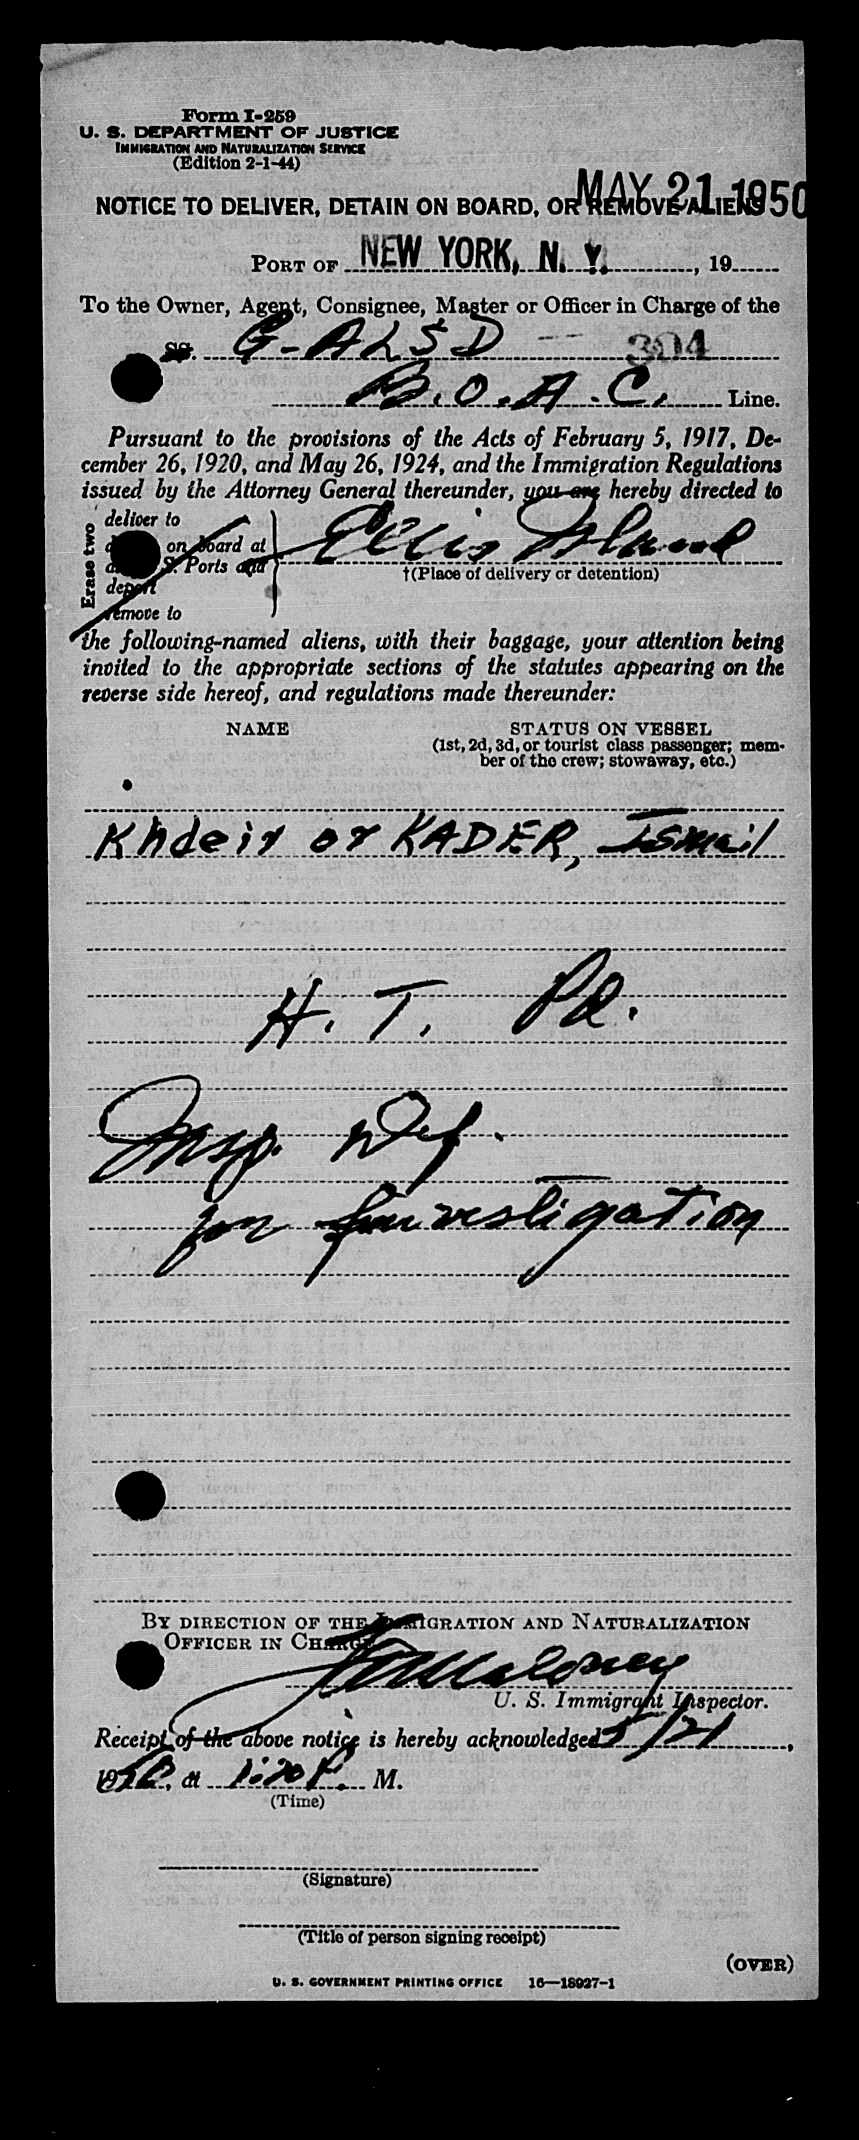 Form I-259
U. S. DEPARTMENT OF JUSTICE
IMMIGRATION AND NATURALIZATION SERVICE
(Edition 2-1-44)
MAY 21 1950
NOTICE TO DELIVER, DETAIN ON BOARD, OR REMOVE ALIENS
PORT OF NEW YORK, N. Y. , 19
To the Owner, Agent, Consignee, Master or Officer in Charge of the
SS. G-ALSD 304
B.O.A.C. Line.
Pursuant to the provisions of the Acts of February 5, 1917, De-
cember 26, 1920, and May 26, 1924, and the Immigration Regulations
issued by the Attorney General thereunder, you are hereby directed to
Erase two
deliver to
on board at
S. Ports and
deport
remove to
Ellis Island
†(Place of delivery or detention)
the following-named aliens, with their baggage, your attention being
invited to the appropriate sections of the statutes appearing on the
reverse side hereof, and regulations made thereunder:
NAME STATUS ON VESSEL
(1st, 2d, 3d, or tourist class passenger; mem-
ber of the crew; stowaway, etc.)
Khdeir or KADER, Ismail
H. T. Pd.
Insp. Def.
for Investigation
BY DIRECTION OF THE IMMIGRATION AND NATURALIZATION
OFFICER IN CHARGE
Maloney
U. S. Immigrant Inspector.
Receipt of the above notice is hereby acknowledged 5/21,
1950, at 1:20 P. M.
(Time)
(Signature)
(Title of person signing receipt)
(OVER)
U. S. GOVERNMENT PRINTING OFFICE 16—18927-1